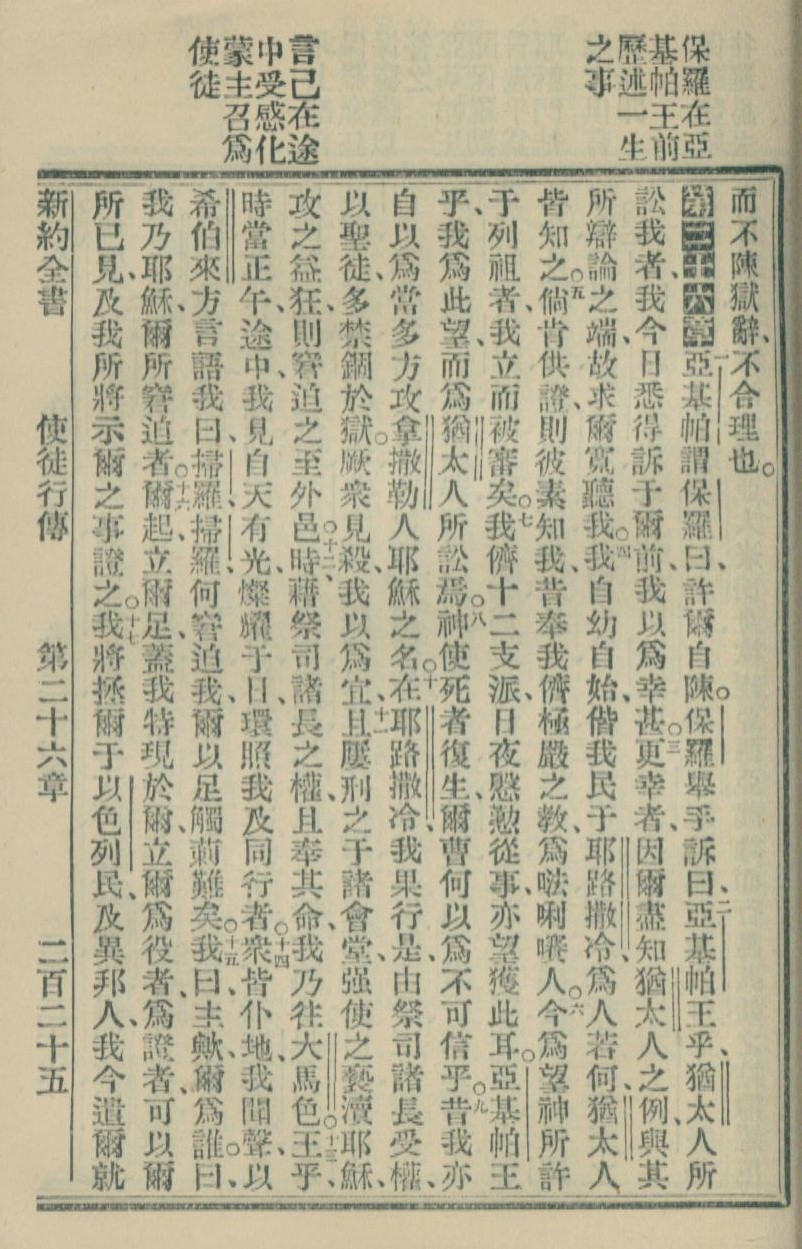 保羅在亞
基帕王前
歷述一生
之事
言己在途
中受感化
蒙主召爲
使徒
而不陳獄辭、不合理也。
第二十六章一亞基帕謂保羅曰、許爾自陳。保羅舉手訴曰、二亞基帕王乎、猶太人所
訟我者、我今日悉得訴于爾前、我以爲幸甚。三更幸者、因爾盡知猶太人之例、與其
所辯論之端、故求爾寬聽我。四我自幼自始、偕我民于耶路撒冷、爲人若何、猶太人
皆知之。五倘肯供證、則彼素知我、昔奉我儕極嚴之教、爲𠵽唎㘔人。六今爲望神所許
于列祖者、我立而被審矣。七我儕十二支派、日夜慇懃從事、亦望獲此耳。亞基帕王
乎、我爲此望而爲猶太人所訟焉。八神使死者復生、爾曹何以爲不可信乎。九昔我亦
自以爲當多方攻拿撒勒人耶穌之名。十在耶路撒冷、我果行是、由祭司諸長受權、
以聖徒多禁錮於獄。厥衆見殺、我以爲宜。十一且屢刑之于諸會堂、强使之褻瀆耶穌、
攻之益狂、則窘迫之至外邑。十二時藉祭司諸長之權、且奉其命、我乃往大馬色。十三王乎、
時當正午、途中、我見自天有光、燦耀于日、環照我及同行者。十四衆皆仆地、我聞聲、以
希伯來方言語我曰、掃羅、掃羅、何窘迫我、爾以足觸荊難矣。十五我曰、主歟、爾爲誰。曰、
我乃耶穌、爾所窘迫者。十六爾起、立爾足、蓋我特現於爾、立爾爲役者、爲證者、可以爾
所已見、及我所將示爾之事證之。十七我將拯爾于以色列民、及異邦人、我今遣爾就
新約全書 使徒行傳 第二十六章 二百二十五